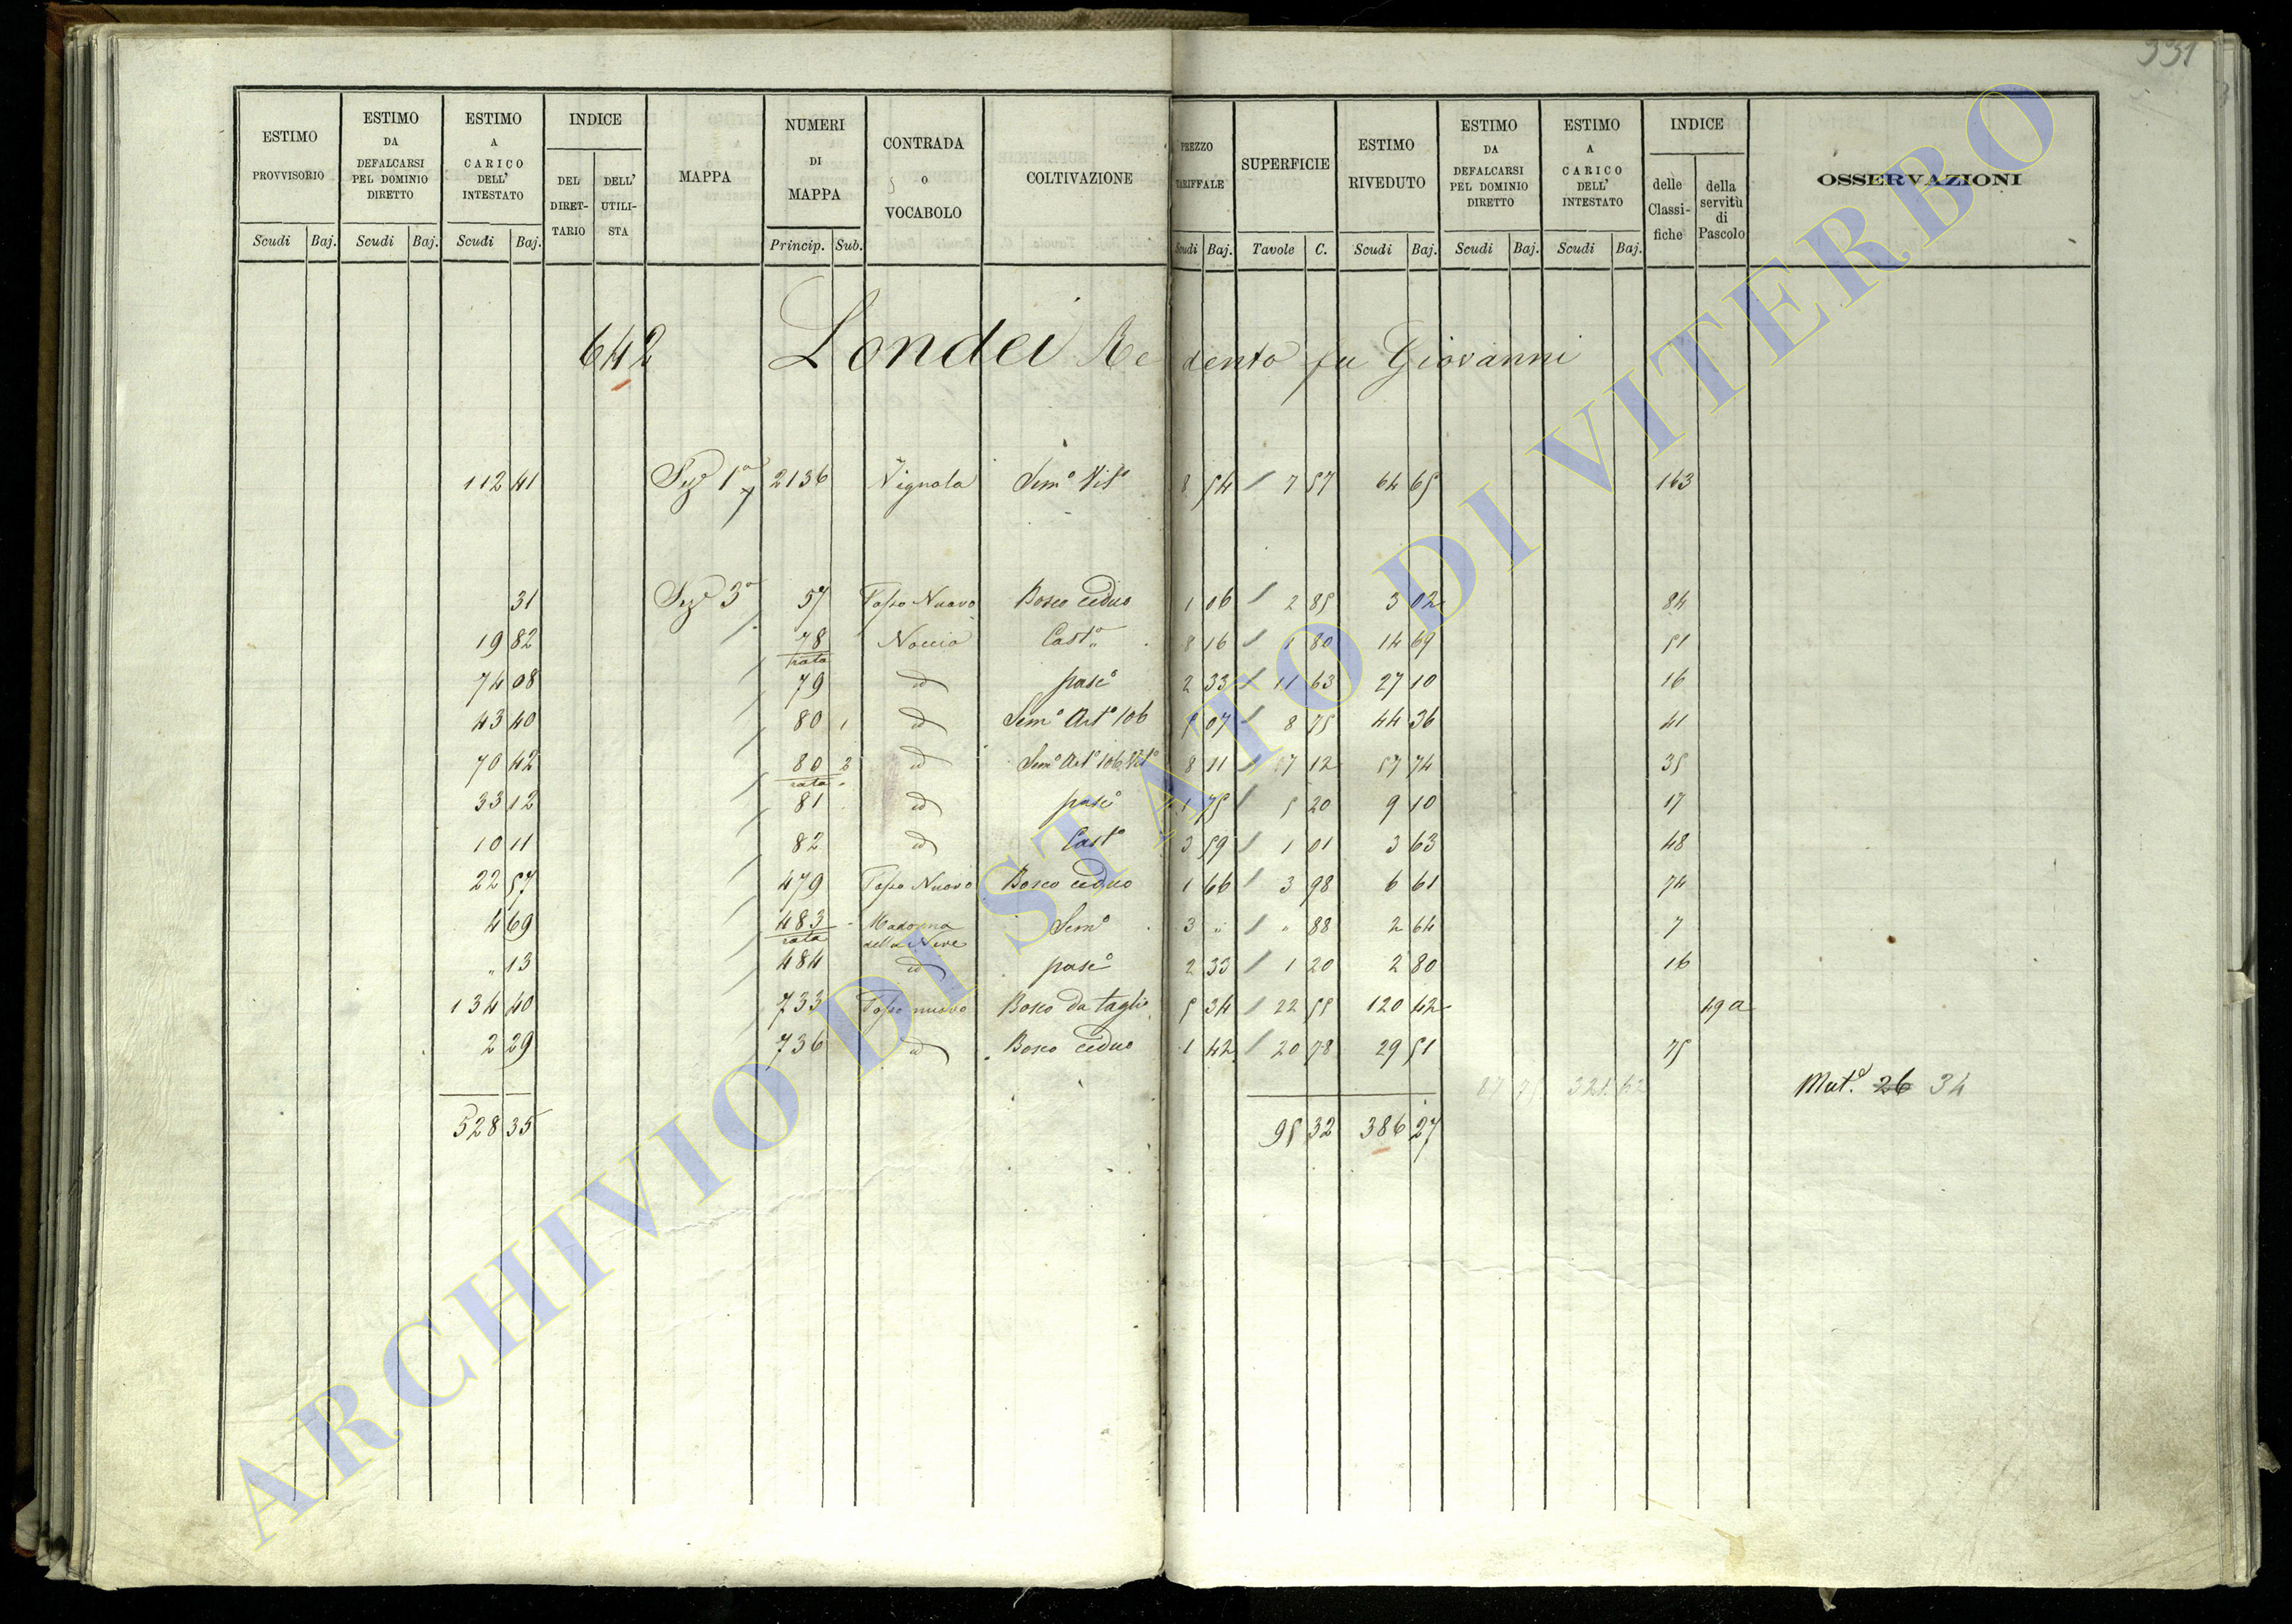 331
ESTIMO PROVVISORIO | ESTIMO DA DEFALCARSI PEL DOMINIO DIRETTO | ESTIMO A CARICO DELL' INTESTATO | INDICE | MAPPA | NUMERI DI MAPPA | CONTRADA O VOCABOLO | COLTIVAZIONE | PREZZO TARIFFALE | SUPERFICIE | ESTIMO RIVEDUTO | ESTIMO DA DEFALCARSI PEL DOMINIO DIRETTO | ESTIMO A CARICO DELL' INTESTATO | INDICE | OSSERVAZIONI
DEL DIRET-TARIO | DELL' UTILI-STA | delle Classi-fiche | della servitù di Pascolo
Scudi | Baj. | Scudi | Baj. | Scudi | Baj. | Princip. | Sub. | Scudi | Baj. | Tavole | C. | Scudi | Baj. | Scudi | Baj. | Scudi | Baj.
642 Londei Redento fu Giovanni
112 41 | Sez.e 1a | 2136 | Vignola | Sem.o Vit.o | 8 54 | 7 57 | 64 65 | 163
31 | Sez.e 3a | 57 | Posso Nuovo | Bosco ceduo | 1 06 | 2 85 | 3 02 | 84
19 82 | 78 rata | Noccio | Cast.o | 8 16 | 1 80 | 14 69 | 51
74 08 | 79 | id | pasc.o | 2 33 | 11 63 | 27 10 | 16
43 40 | 80 1 | id | Sem.o Art.o 106 | 5 07 | 8 75 | 44 36 | 41
70 42 | 80 2 rata | id | Sem.o Art.o 106 Vit.o | 8 11 | 7 12 | 57 74 | 35
33 12 | 81 | id | pasc.o | 1 75 | 5 20 | 9 10 | 17
10 11 | 82 | id | Cast.o | 3 59 | 1 01 | 3 63 | 48
22 57 | 479 | Posso Nuovo | Bosco ceduo | 1 66 | 3 98 | 6 61 | 74
4 69 | 483 rata | Madonna della Neve | Sem.o | 3 " | " 88 | 2 64 | 7
" 13 | 484 | id | pasc.o | 2 33 | 1 20 | 2 80 | 16
134 40 | 733 | Posso nuovo | Bosco da taglio | 5 34 | 22 55 | 120 42 | 49 a
2 29 | 736 | id | Bosco ceduo | 1 42 | 20 78 | 29 51 | 75
Mut.a 26 34
528 35 | 95 32 | 386 27
ARCHIVIO DI STATO DI VITERBO